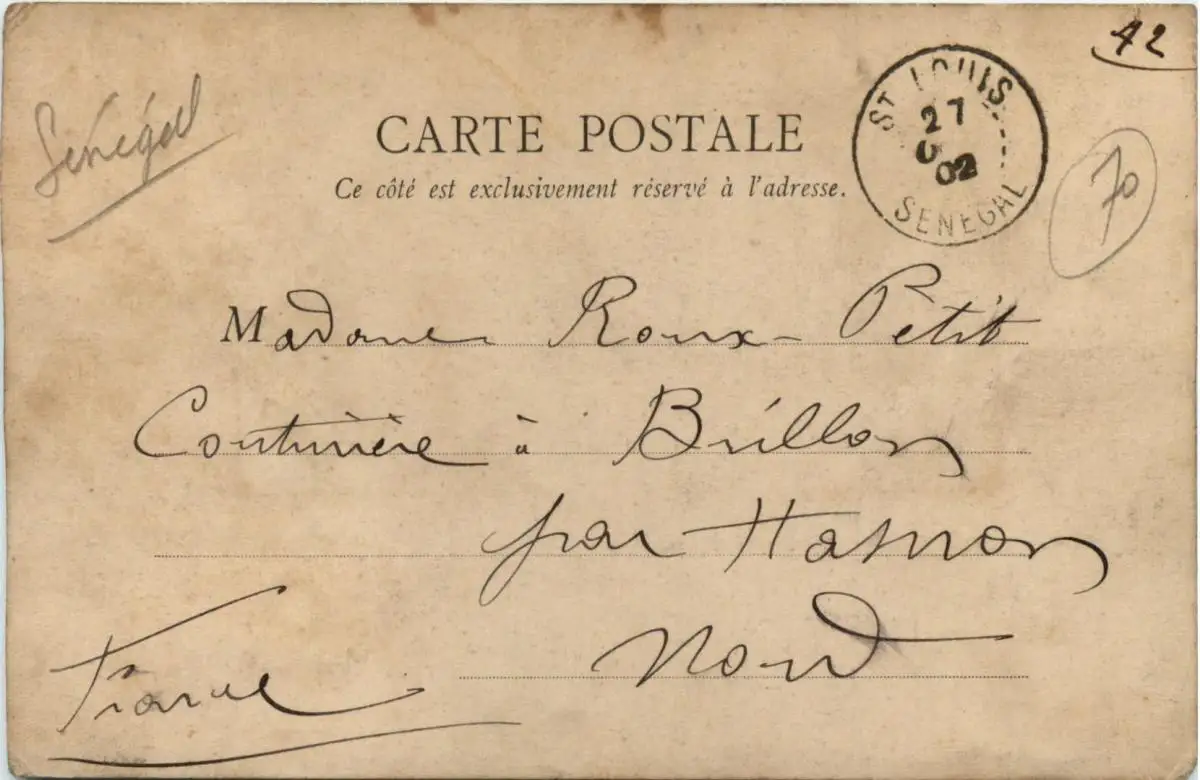 42
Sénégal
CARTE POSTALE
Ce côté est exclusivement réservé à l'adresse.
ST LOUIS
27
02
SENEGAL
70
Madame Roux-Petit
Couturière à Brillon
par Hasnon
Nord
France